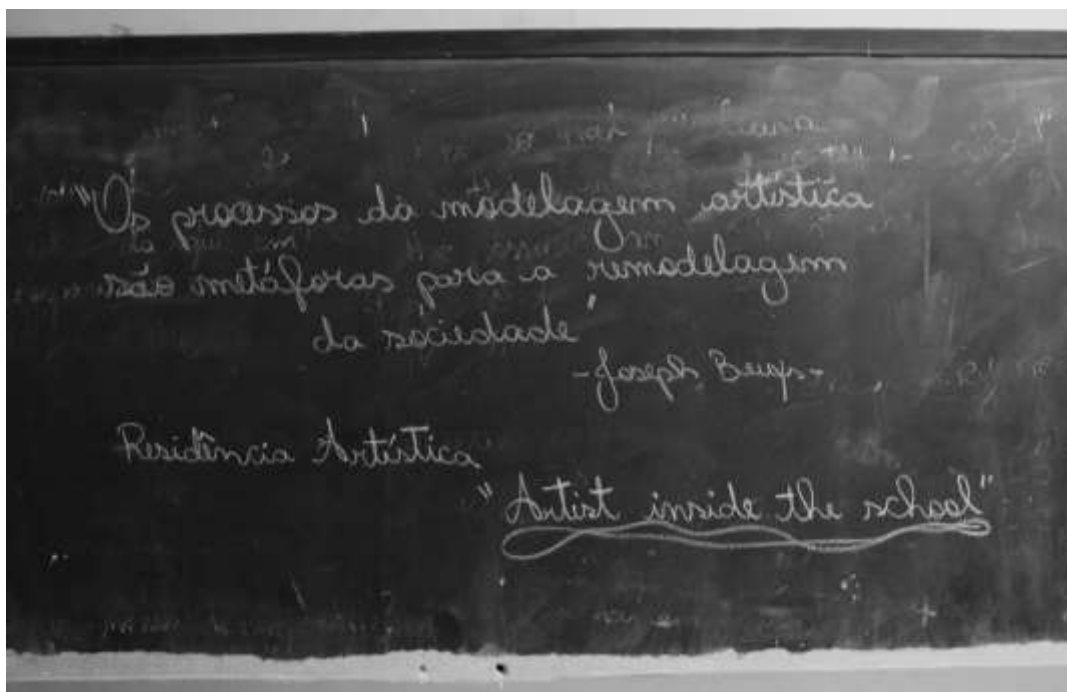 "Os processos da modelagem artística
são metáforas para a remodelagem
da sociedade"
-Joseph Beuys-
Residência Artística
"Artist inside the school"